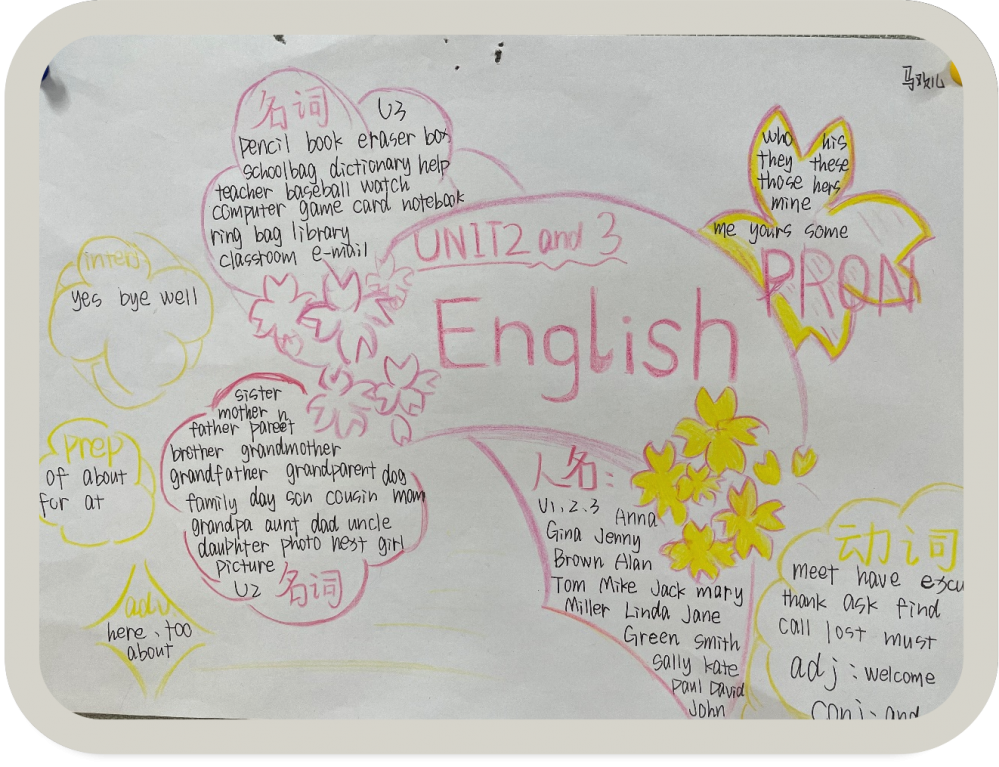 马欢儿
名词 U3
pencil book eraser box
schoolbag dictionary help
teacher baseball watch
computer game card notebook
ring bag library
classroom e-mail
UNIT2 and 3
English
who his
they these
those hers
mine
me yours some
PRON
interj
yes bye well
prep
of about
for at
adv
here、too
about
sister
mother
father pareet
n
brother grandmother
grandfather grandparent dog
family day son cousin mom
grandpa aunt dad uncle
dauphter photo nest girl
picture
U2 名词
人名:
U1.2.3 Anna
Gina Jenny
Brown Alan
Tom Mike Jack mary
Miller Linda Jane
Green smith
sally kate
paul David
John
动词
meet have
thank ask find
call lost must
adj:welcome
conj:and